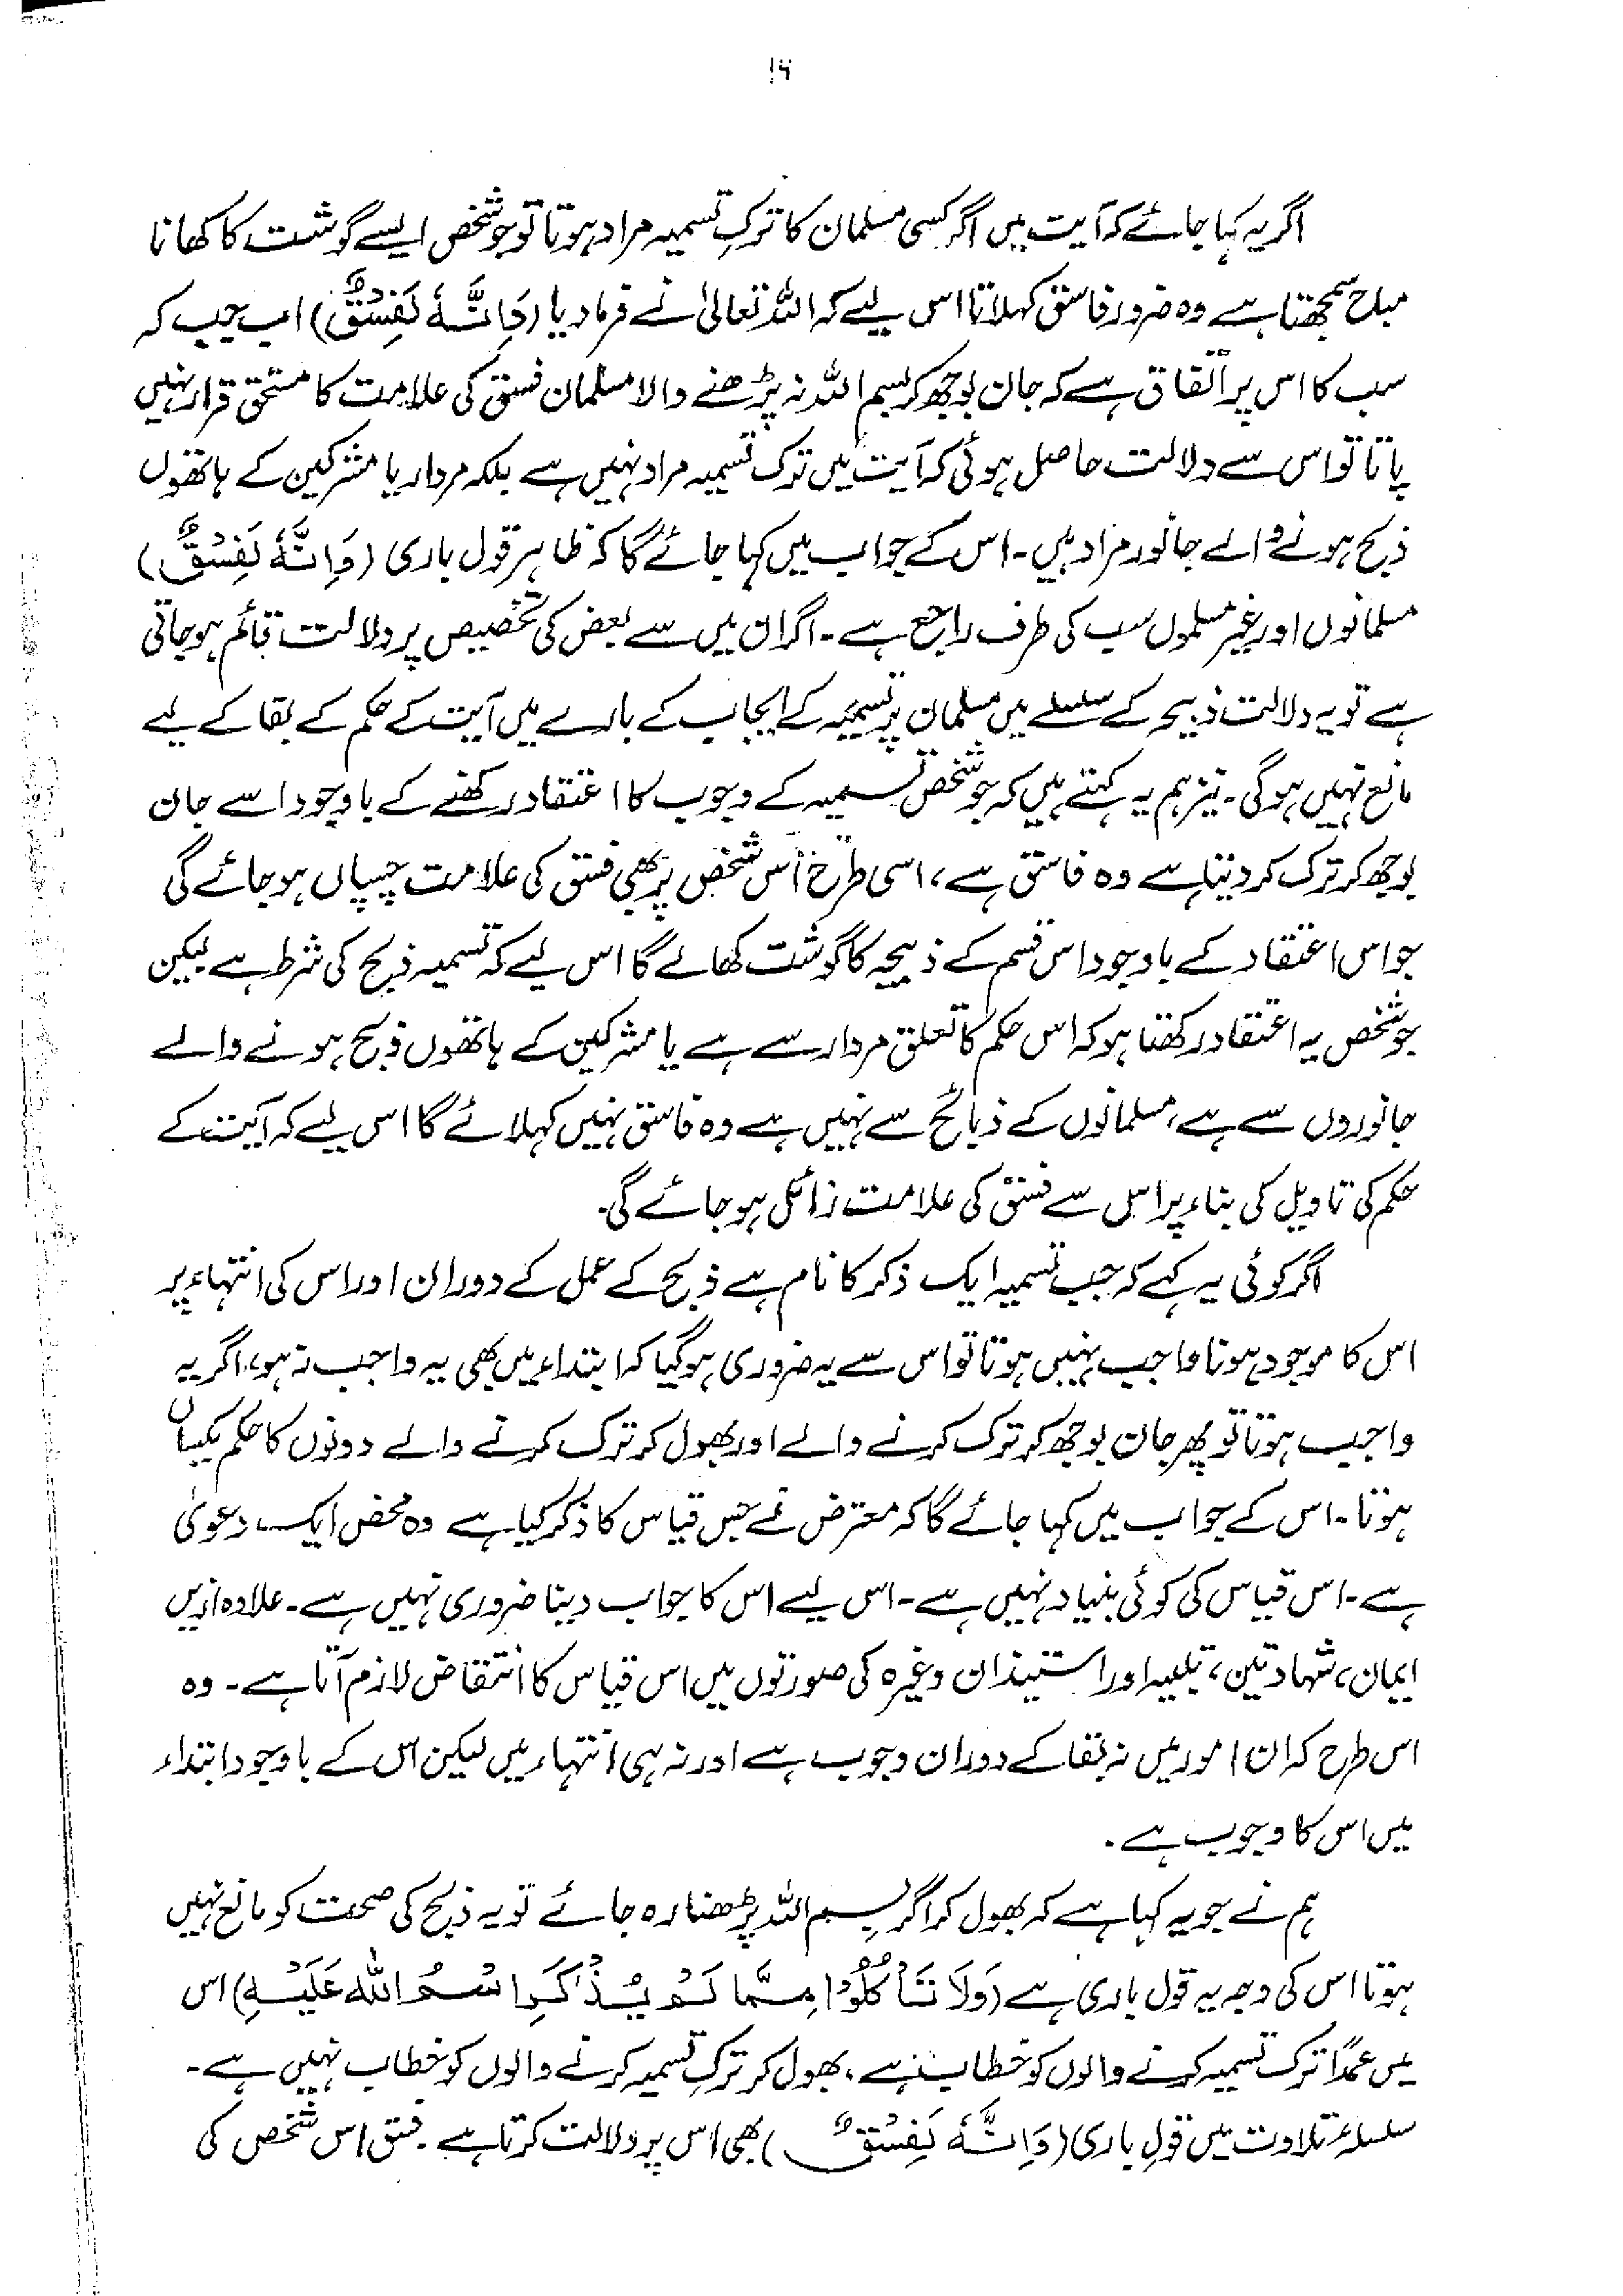 ۱۶
اگر یہ کہا جائے کہ آیت میں اگر کسی مسلمان کا ترکِ تسمیہ مراد ہوتا تو جو شخص ایسے گوشت کا کھانا
مباح سمجھتا ہے وہ ضرور فاسق کہلاتا اس لیے کہ اللہ تعالیٰ نے فرما دیا (وَاِنَّهٗ لَفِسْقٌ) اب جب کہ
سب کا اس پر اتفاق ہے کہ جان بوجھ کر بسم اللہ نہ پڑھنے والا مسلمان فسق کی علامت کا مستحق قرار نہیں
پاتا تو اس سے دلالت حاصل ہوئی کہ آیت میں ترک تسمیہ مراد نہیں ہے بلکہ مردار یا مشرکین کے ہاتھوں
ذبح ہونے والے جانور مراد ہیں۔ اس کے جواب میں کہا جائے گا کہ ظاہر قول باری (وَاِنَّهٗ لَفِسْقٌ)
مسلمانوں اور غیر مسلموں سب کی طرف راجع ہے۔ اگر ان میں سے بعض کی تخصیص پر دلالت قائم ہو جاتی
ہے تو یہ دلالت ذبیحہ کے سلسلے میں مسلمان پر تسمیہ کے ایجاب کے بارے میں آیت کے حکم کے بقا کے لیے
مانع نہیں ہوگی۔ نیز ہم یہ کہتے ہیں کہ جو شخص تسمیہ کے وجوب کا اعتقاد رکھنے کے باوجود اسے جان
بوجھ کر ترک کر دیتا ہے وہ فاسق ہے، اسی طرح اُس شخص پر بھی فسق کی علامت چسپاں ہو جائے گی
جو اس اعتقاد کے باوجود اس قسم کے ذبیحہ کا گوشت کھائے گا اس لیے کہ تسمیہ ذبح کی شرط ہے لیکن
جو شخص یہ اعتقاد رکھتا ہو کہ اس حکم کا تعلق مردار سے ہے یا مشرکین کے ہاتھوں ذبح ہونے والے
جانوروں سے ہے، مسلمانوں کے ذبائح سے نہیں ہے وہ فاسق نہیں کہلائے گا اس لیے کہ آیت کے
حکم کی تاویل کی بناء پر اس سے فسق کی علامت زائل ہو جائے گی۔
اگر کوئی یہ کہے کہ جب تسمیہ ایک ذکر کا نام ہے ذبح کے عمل کے دوران اور اس کی انتہاء پر
اس کا موجود ہونا واجب نہیں ہوتا تو اس سے یہ ضروری ہو گیا کہ ابتداء میں بھی یہ واجب نہ ہو، اگر یہ
واجب ہوتا تو پھر جان بوجھ کر ترک کرنے والے اور بھول کر ترک کرنے والے دونوں کا حکم یکساں
ہوتا۔ اس کے جواب میں کہا جائے گا کہ معترض نے جس قیاس کا ذکر کیا ہے وہ محض ایک دعویٰ
ہے۔ اس قیاس کی کوئی بنیاد نہیں ہے۔ اس لیے اس کا جواب دینا ضروری نہیں ہے۔ علاوہ ازیں
ایمان، شہادتین، تلبیہ اور استیذان وغیرہ کی صورتوں میں اس قیاس کا انتقاض لازم آتا ہے۔ وہ
اس طرح کہ ان امور میں نہ بقا کے دوران وجوب ہے اور نہ ہی انتہاء میں لیکن اس کے باوجود ابتداء
میں اس کا وجوب ہے۔
ہم نے جو یہ کہا ہے کہ بھول کر اگر بسم اللہ پڑھنا رہ جائے تو یہ ذبح کی صحت کو مانع نہیں
ہوتا اس کی وجہ یہ قول باری ہے (وَلَا تَأْكُلُوْا مِمَّا لَمْ يُذْكَرِ اسْمُ اللّٰهِ عَلَيْهِ) اس
میں عمداً ترک تسمیہ کرنے والوں کو خطاب ہے، بھول کر ترکِ تسمیہ کرنے والوں کو خطاب نہیں ہے۔
سلسلۂ تلاوت میں قولِ باری (وَاِنَّهٗ لَفِسْقٌ) بھی اس پر دلالت کرتا ہے۔ فسق اس شخص کی